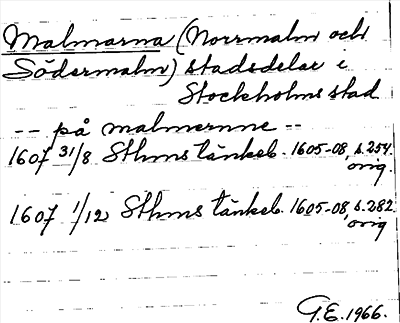 Malmarna (Norrmalm och
Södermalm) stadsdelar i
Stockholms stad
-- på malmernne --
1607 31/8 Sthms tänkeb. 1605-08, s. 254.
orig.
1607 1/12 Sthms tänkeb. 1605-08, s. 282
orig
G.E. 1966.